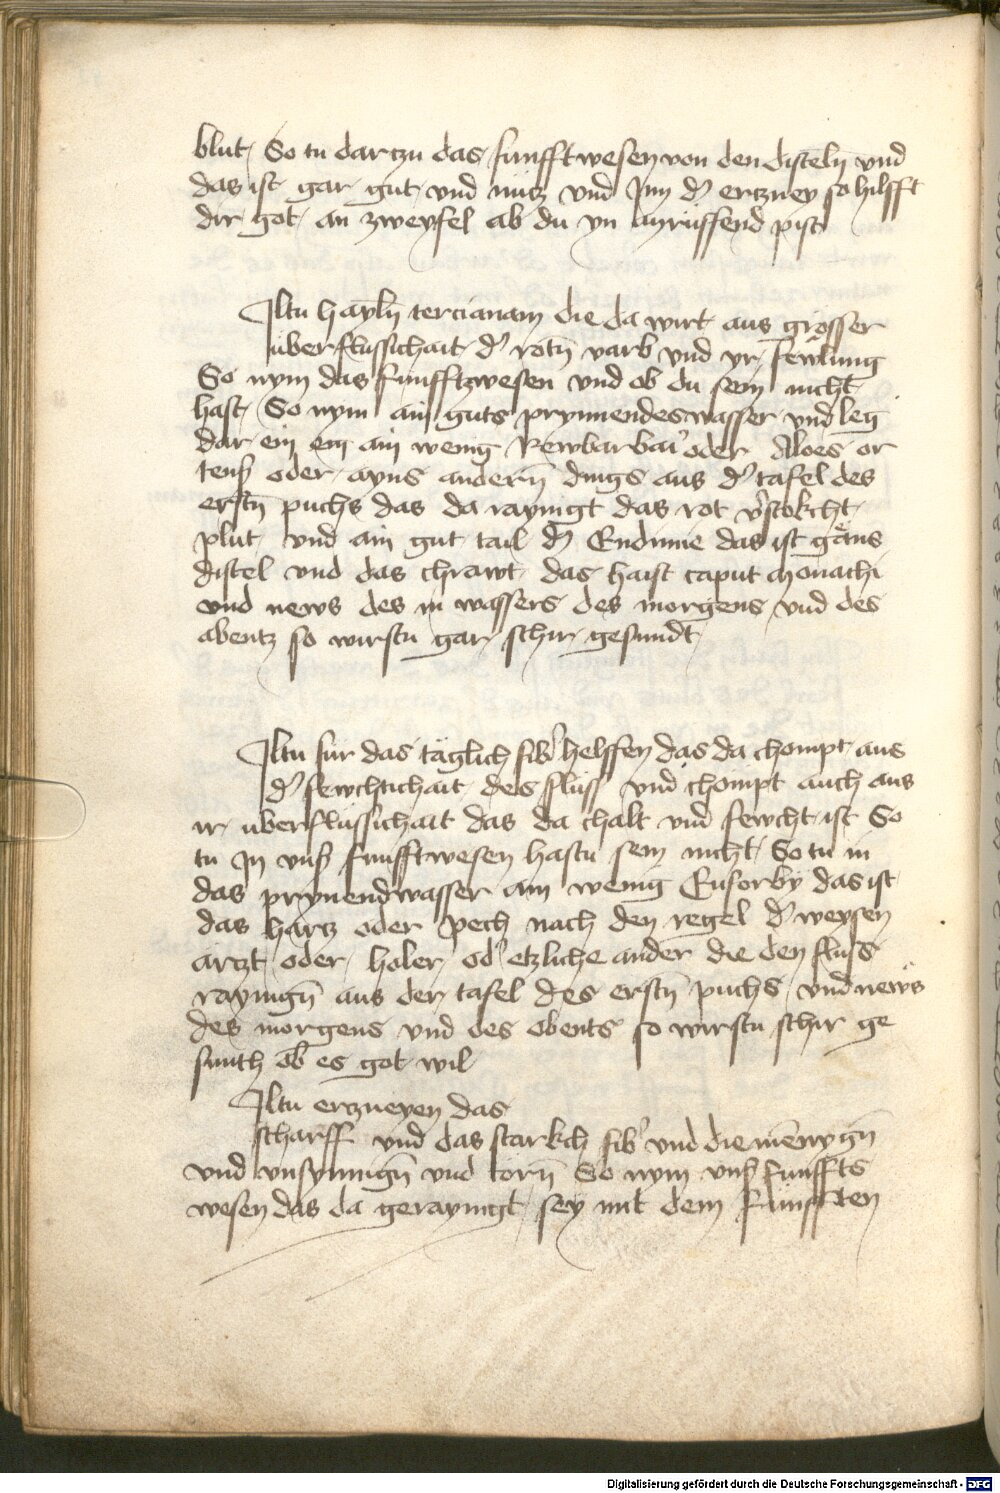 blut So tu dartzu das funfftwesen von den disteln̄ vnd
das ist gar gut vnd nutz vnd Inn d' ertzney so hilfft
dir got an zweyfel ab du yn anruffend pist
Iltu hayln̄ tercianam die da wirt aus grosser
überflüssichait d' rotn̄ varb vnd yr fewlung
So nym das funfftzwesen vnd ob du sein nicht
hast So nym ain guts prynnendes wasser vnd leg
dar ein ein ain wenig Rewbarbar' oder Aloes or
tens oder ayns andern̄ dings aus d' tafel des
erstn̄ puchs das da raynigt das rot v'stokcht
plut vnd ain gut tail d' Endiuie das ist gäns
distel vnd das chrawt das haist caput monachi
vnd news des in wassers des morgens vnd des
abentz so wirstu gar schir gesundt
Iltu für das täglich fib' helffen das da chompt aus
d' fewchtichait des fluss vnd chompt auch aus
ir überflüssichait das da chalt vnd fewcht ist So
tu In vns' funfftwesen hastu sein nicht So tu in
das prynend wasser ain wenig Euforby das ist
das hartz oder pech nach den regel d' weysen
ärtzt oder holer od' etzliche ander die den fluss
raynign̄ aus der tafel des erstn̄ puchs vnd news
des morgens vnd des obents so wirstu schir ge
sunth ob es got wil
Iltu ertzneyen das
scharff vnd das starkch fib' vnd die
vnd vnsynnign̄ vnd torn̄ So nym vns' funffts
wesen das da geraynigt sey mit dem funfften
Digitalisierung gefördert durch die Deutsche Forschungsgemeinschaft - DFG